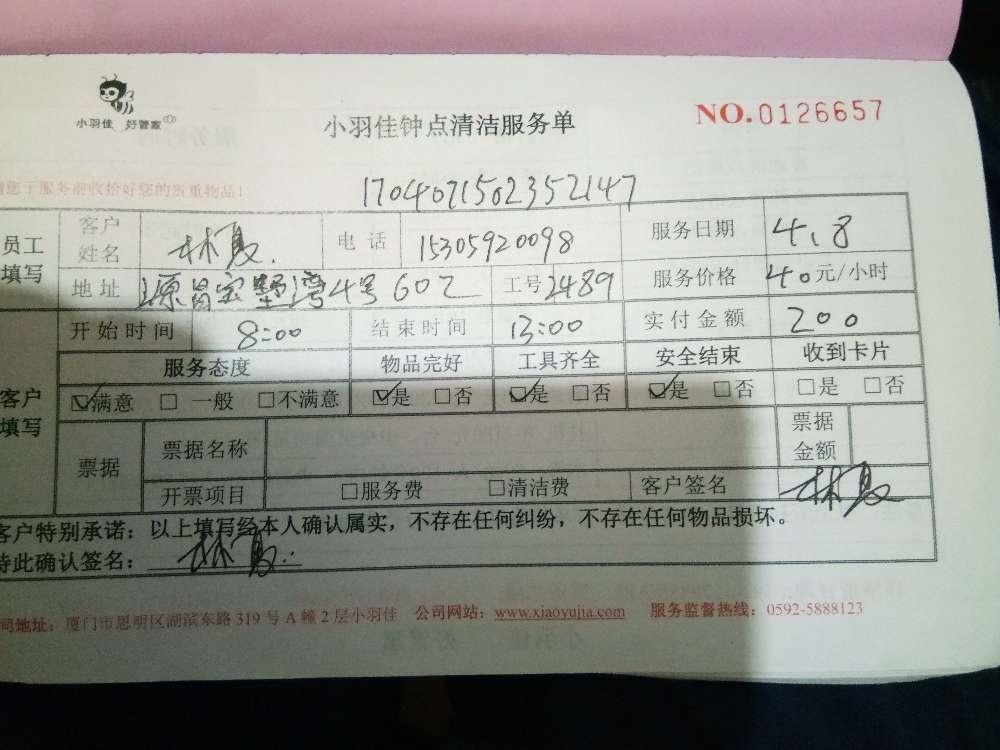 小羽佳 好管家
小羽佳钟点清洁服务单
NO.0126657
请您于服务前收拾好您的贵重物品!
1704071502352147
员工填写
客户姓名 林夏. 电话 15305920098 服务日期 4.8
地址 源昌宝墅湾4号602 工号 2489 服务价格 40元/小时
开始时间 8:00 结束时间 13:00 实付金额 200
客户填写
服务态度 物品完好 工具齐全 安全结束 收到卡片
☑满意 □ 一般 □不满意 ☑是 □否 ☑是 □否 ☑是 □否 □是 □否
票据 票据名称 票据金额
开票项目 □服务费 □清洁费 客户签名 林夏
客户特别承诺：以上填写经本人确认属实，不存在任何纠纷，不存在任何物品损坏。
特此确认签名： 林夏.
司地址：厦门市思明区湖滨东路319号A幢2层小羽佳 公司网站：www.xiaoyujia.com 服务监督热线：0592-5888123